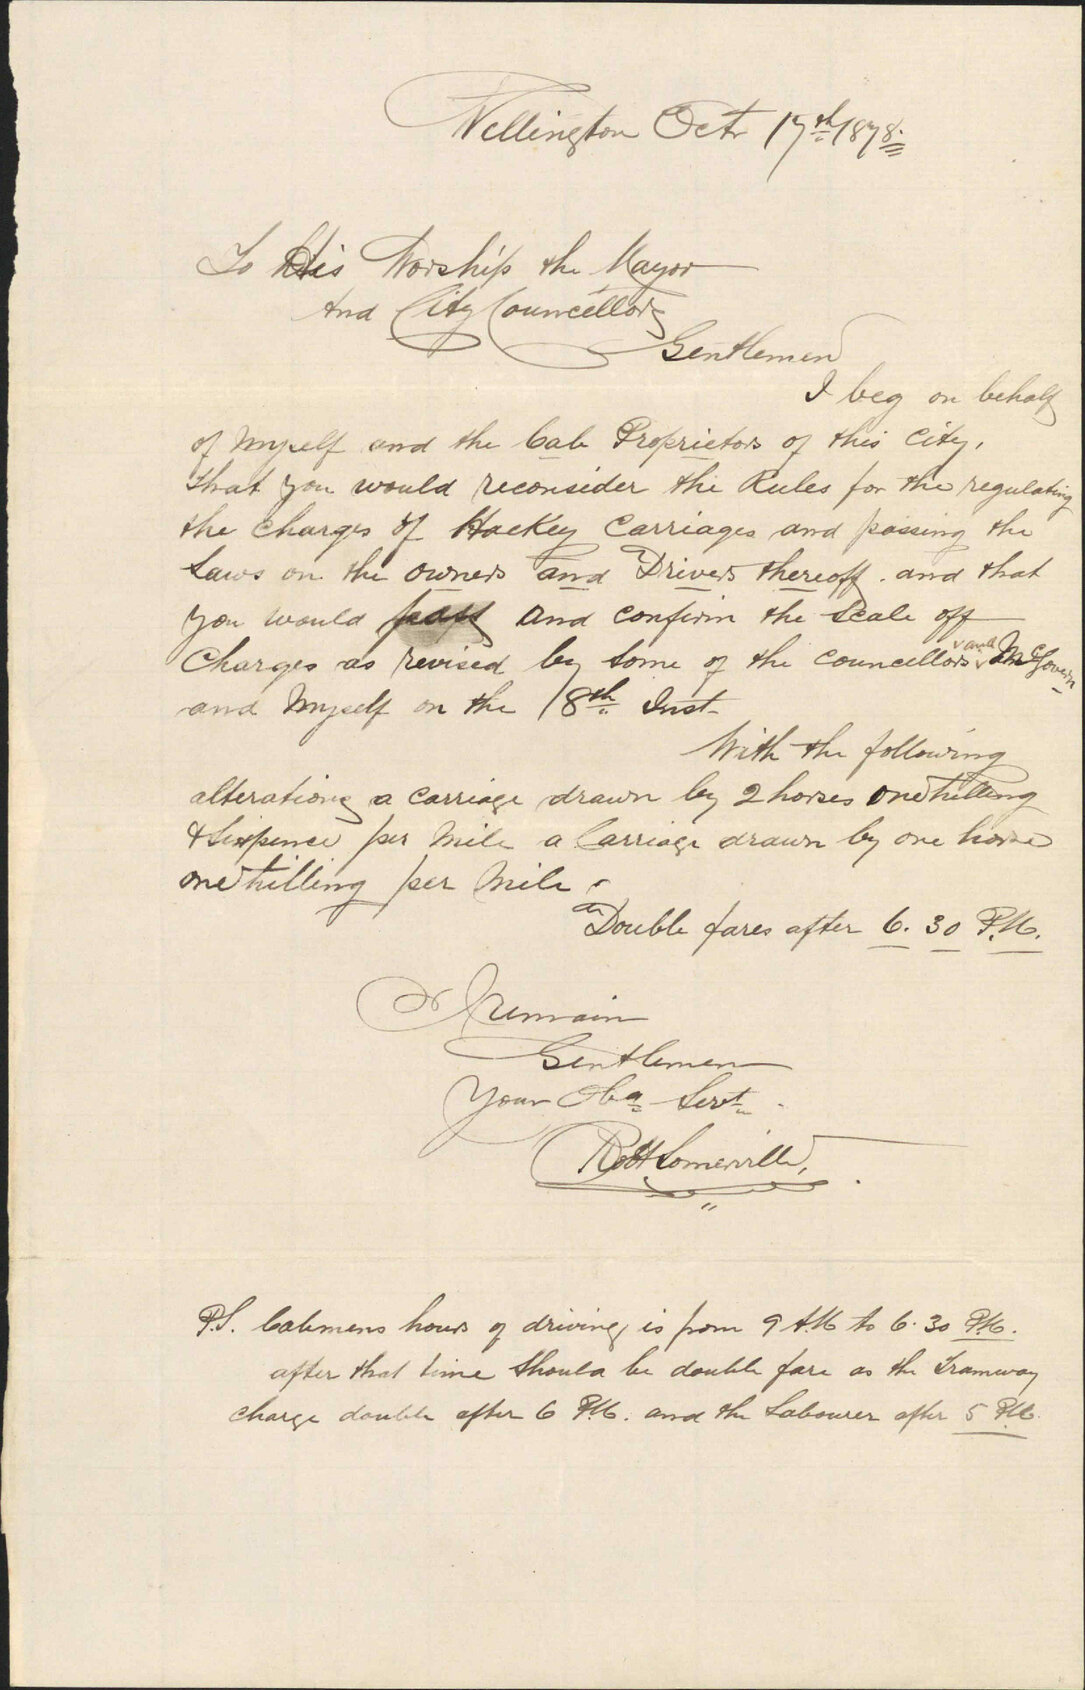 Wellington Octr 17th 1878.
To His Worship the Mayor
And City Councillors
Gentlemen
I beg on behalf
of Myself and the Cab Proprietors of this City,
that you would reconsider the Rules for the regulating
the Charges of Hackey Carriages and passing the
Laws on the owners and Drivers thereoff. and that
you would pass and confirm the Scale off
Charges as revised by some of the councillors and McGovern
and Myself on the 18th Inst
With the following
alterations a carriage drawn by 2 horses one shilling
& Sixpence per Mile a Carriage drawn by one horse
one shilling per Mile.
Double fares after 6.30 P.M.
I remain
Gentlemen
Your Obd Servt
Robt Somerville,
P.S. Cabmens hours of driving is from 9 AM to 6.30 P.M.
after that time should be double fare as the Tramway
charge double after 6 P.M. and the Labourer after 5 P.M.